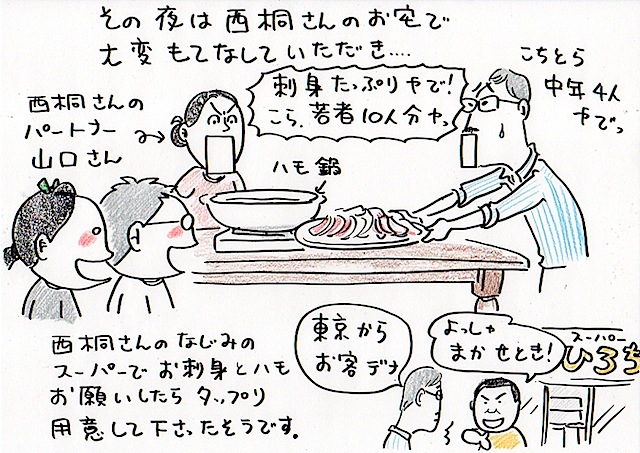 その夜は西桐さんのお宅で
大変もてなしていただき‥‥
こちとら
中年4人
やでっ
刺身たっぷりやで!
こら、若者10人分やっ
西桐さんの
パートナー
山口さん
ハモ鍋
西桐さんのなじみの
スーパーでお刺身とハモ
お願いしたらタップリ
用意して下さったそうです。
東京から
お客デナ
よっしゃ
まかせとき!
スーパー
ひろち